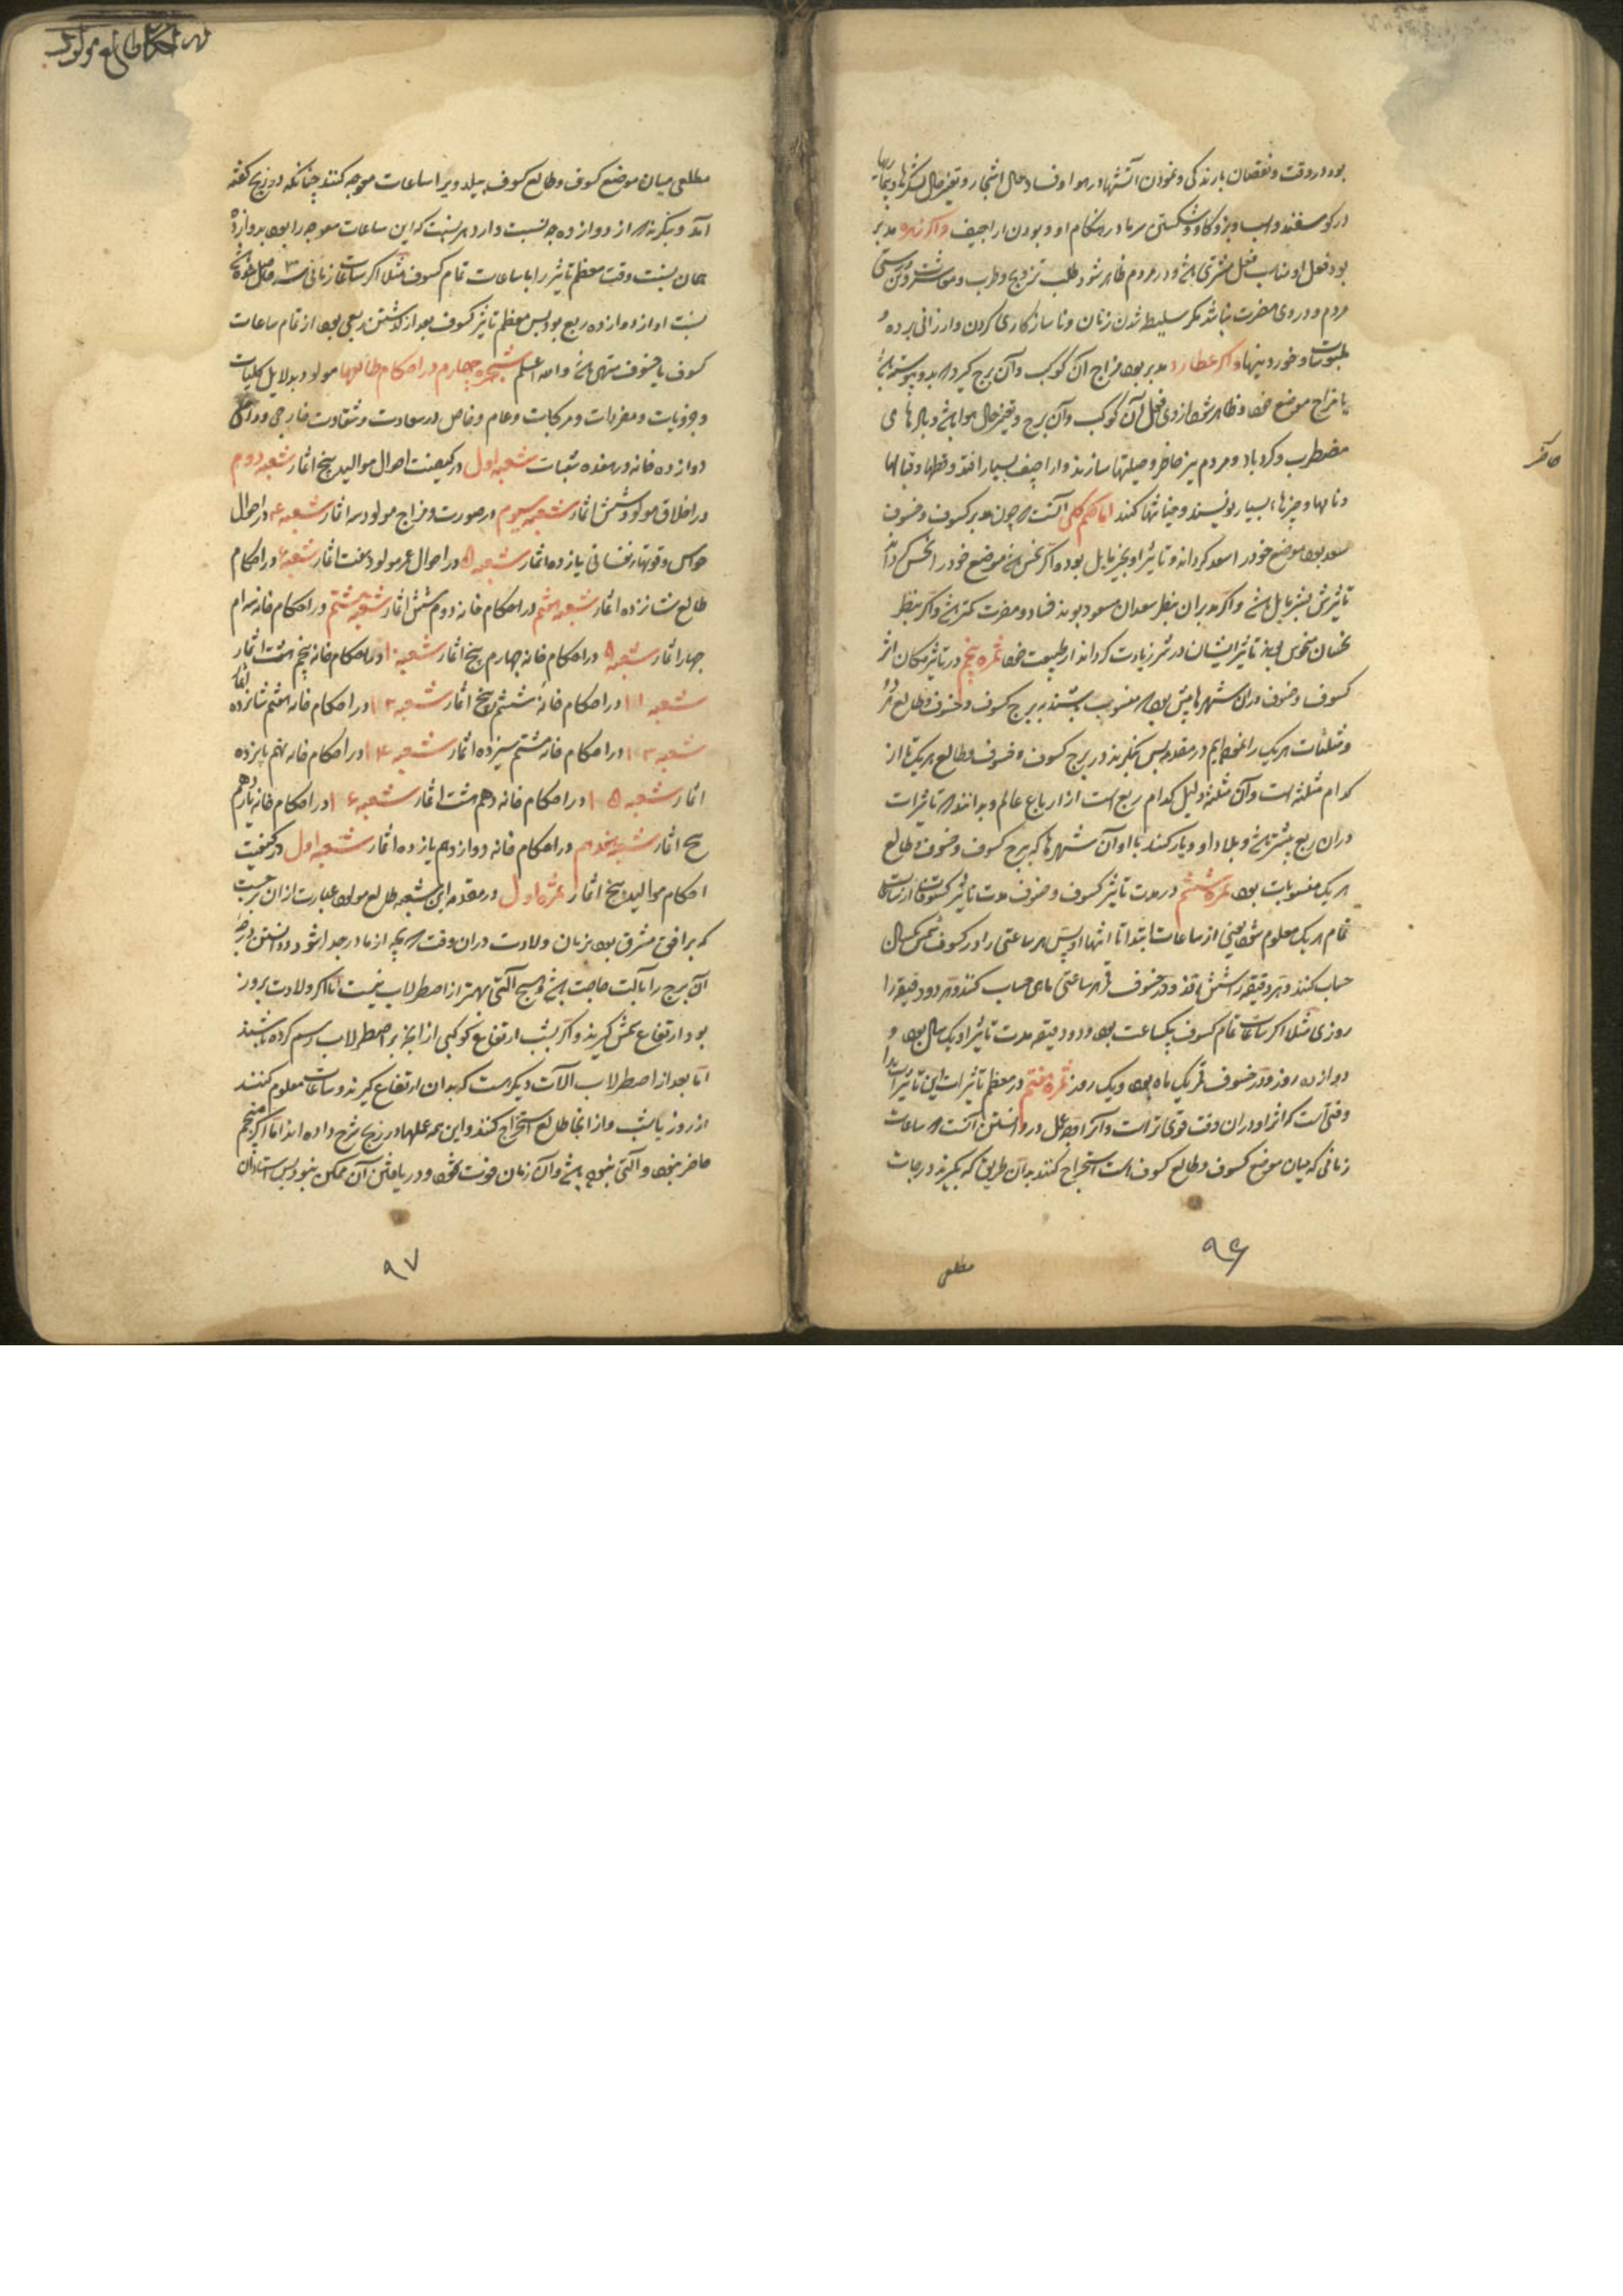 بود در وقت و نقصان بارندگی و نمودن آتشها در هوا و فساد حال اشجار و تغیر حال لشکرها و بیماریها
در گوسفند و اسب و بز و گاو و شکستی سرما در هنگام او و بودن اراجیف و اگر زهره مدبر
بود فعل او مناسب فعل مشتری باشد و در مردم ظاهر شود طلب تزویج و طرب و معاشرت و تن درستی
مردم و در وی مضرت نباشد مگر سلیطه شدن زنان و ناسازگاری کردن و ارزانی برده و
ملبوسات و خوردنیها و اگر عطارد مدبر بود مزاج آن کوکب و آن برج گیرد که بدو پیوسته باشد
یا مزاج موضع خود و ظاهر شود از وی فعل آن کوکب و آن برج و تغیر حال هوا باشد و بادهای
مضطرب و گردباد و مردم تیز خاطر و حیلتها سازند و اراجیف بسیار افتد و خطها و قبالها
و نامها و چیزها بسیار نویسند و خیانتها کنند اما حکم کلی آنست که چون مدبر کسوف و خسوف
سعد بود موضع خود را سعد گرداند و تاثیر او بخیر مایل بود و اگر نحس باشد موضع خود را نحس گرداند
تاثیرش بشر مایل باشد و اگر مدبران بنظر سعدان مسعود بوند فساد و مضرت کمتر باشد و اگر بنظر
نحسان منحوس بوند تاثیر ایشان در شر زیادت گرداند از طبیعت خود ثمره پنجم در تاثیر مکان اثر
کسوف و خسوف در آن شهرها بیش بود که منسوب باشند به برج کسوف و خسوف و طالع هر دو
و مثلثات هر یک را نموده‌ایم در مقدمه پس بنگرند در برج کسوف و خسوف و طالع هر یک تا از
کدام مثلثه است و آن مثلثه دلیل کدام ربع است از ارباع عالم و بدانند که تاثیرات
در آن ربع بیشتر باشد و بلاد او و یار کنند با او آن شهرها که برج کسوف و خسوف و طالع
هر یک منسوبات بود ثمره ششم در مدت تاثیر کسوف و خسوف مدت تاثیر کسوفات از ساعات
تمام هر یک معلوم شود یعنی از ساعات ابتدا تا انتها و پس هر ساعتی را در کسوف شمس یکسال
حساب کنند و هر دقیقه را شش یافد و در خسوف قمر هر ساعتی ماهی حساب کنند و هر دو دقیقه را
روزی مثلا اگر ساعات تمام کسوف یکساعت بود و دو دقیقه مدت تاثیر او یک سال بود و
دوازده روز و در خسوف قمر یک ماه بود و یک روز ثمره هفتم در معظم تاثیرات این تاثیرات بدا
وقتی است که اثر او در آن وقت قوی‌تر است و آنرا عمل در دانستن آنست که ساعات
زمانی که میان موضع کسوف و طالع کسوف است استخراج کنند بدان طریق که بگیرند درجات
۹۶
مطلعی
در احکام طالع مولود
مطلعی میان موضع کسوف و طالع کسوف ببلد و برا ساعات معوجه کنند چنانکه در زیج گفته
آمد و بنگرند که از دوازده چه نسبت دارد هر نسبت که این ساعات معوجه را بود بدوازده
همان نسبت وقت معظم تاثیر را با ساعات تمام کسوف مثلا اگر ساعات زمانی سه حاصل شود
نسبت او از دوازده ربع بود پس معظم تاثیر کسوف بعد از گذشتن ربعی بود از تمام ساعات
کسوف یا خسوف منتهی باشد والله اعلم شجره چهارم در احکام طالعهاء مولود بدلایل کلیات
و جزویات و مفردات و مرکبات و عام و خاص در سعادت و شقاوت خارجی و داخلی
دوازده خانه در هفده شعبات شعبه اول در کیفیت احوال موالید پنج اثمار شعبه دوم
در اخلاق مولود شش اثمار شعبه سیوم در صورت و مزاج مولود سه اثمار شعبه ۴ در احوال
حواس و قوتهاء نفسانی یازده اثمار شعبه ۵ در احوال عمر مولود هفت اثمار شعبه ۶ در احکام
طالع شانزده اثمار شعبه هفتم در احکام خانه دوم شش اثمار شعبه هشتم در احکام خانه سیم
چهار اثمار شعبه ۹ در احکام خانه چهارم پنج اثمار شعبه ۱۰ در احکام خانه پنجم هشت اثمار
شعبه ۱۱ در احکام خانه ششم پنج اثمار شعبه ۱۲ در احکام خانه هفتم شانزده اثمار
شعبه ۱۳ در احکام خانه هشتم سیزده اثمار شعبه ۱۴ در احکام خانه نهم پانزده
اثمار شعبه ۱۵ در احکام خانه دهم هشت اثمار شعبه ۱۶ در احکام خانه یازدهم
پنج اثمار شعبه هفدهم در احکام خانه دوازدهم یازده اثمار شعبه اول در کیفیت
احکام موالید پنج اثمار ثمره اول در مقدمه این شعبه طالع مولود عبارت از آن برجست
که بر افق مشرق بود بزمان ولادت در آن وقت که بچه از مادر جدا شود و دانستن درجه
آن برج را بآلت حاجت باشد و هیچ آلتی بهتر از اصطرلاب نیست تا اگر ولادت بروز
بود ارتفاع شمس گیرند و اگر بشب ارتفاع کوکبی از آنچه بر اصطرلاب رسم کرده باشند
اما بعد از اصطرلاب آلات دیگر هست که بدان ارتفاع گیرند و ساعات معلوم کنند
از روز یا شب و از آنجا طالع استخراج کنند و این همه عملها در زیج شرح داده‌اند اما اگر منجم
حاضر نبود و آلتی نبوده باشد و آن زمان فوت شود و دریافتن آن ممکن نبود پس استادان
۹۷